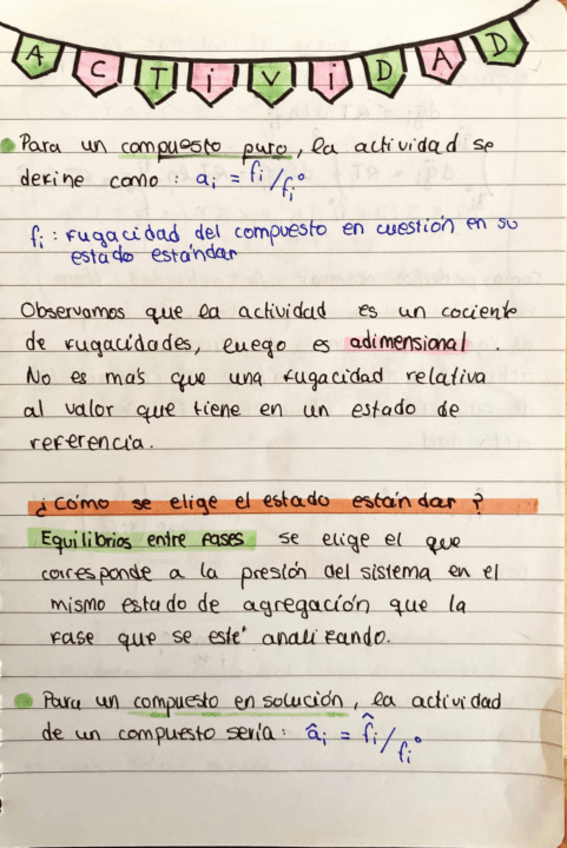 ACTiViDAD
Para un compuesto puro, la actividad se
define como: aᵢ = fᵢ/fᵢ°
fᵢ: fugacidad del compuesto en cuestión en su
estado estándar
Observamos que la actividad es un cociente
de fugacidades, luego es adimensional.
No es más que una fugacidad relativa
al valor que tiene en un estado de
referencia.
¿Cómo se elige el estado estándar?
Equilibrios entre fases se elige el que
corresponde a la presión del sistema en el
mismo estado de agregación que la
fase que se esté analizando.
Para un compuesto en solución, la actividad
de un compuesto sería: âᵢ = f̂ᵢ/fᵢ°